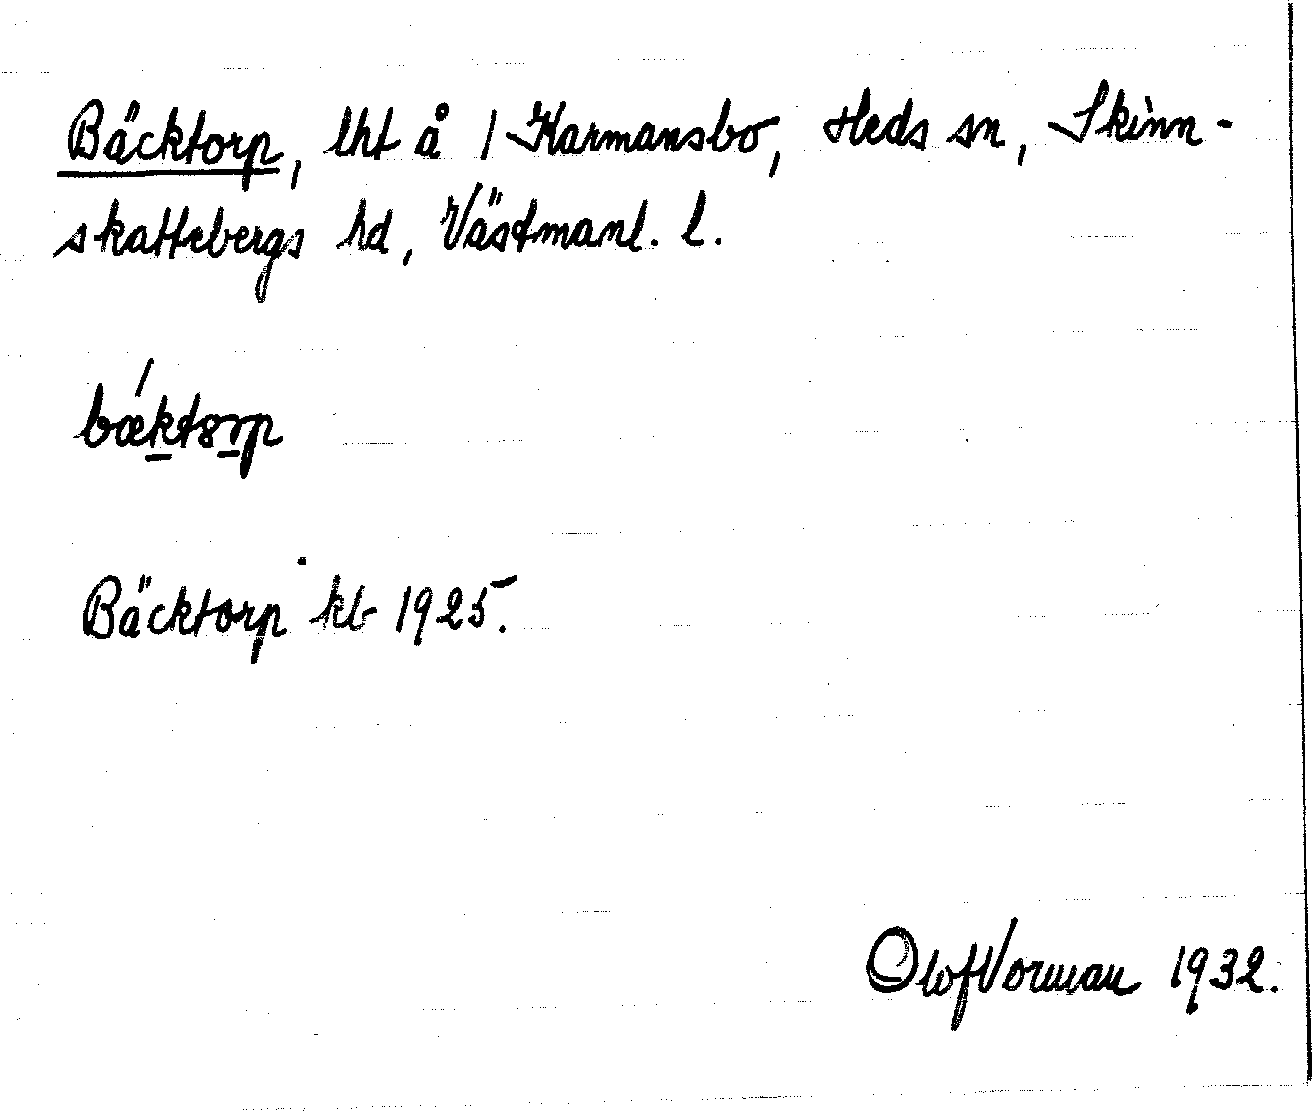 Bäcktorp, lht å 1 Karmansbo, Heds sn, Skinn-
skattebergs hd, Västmanl. l.
bǽktȣrp
Bäcktorp kb 1925.
Olof Vorman 1932.